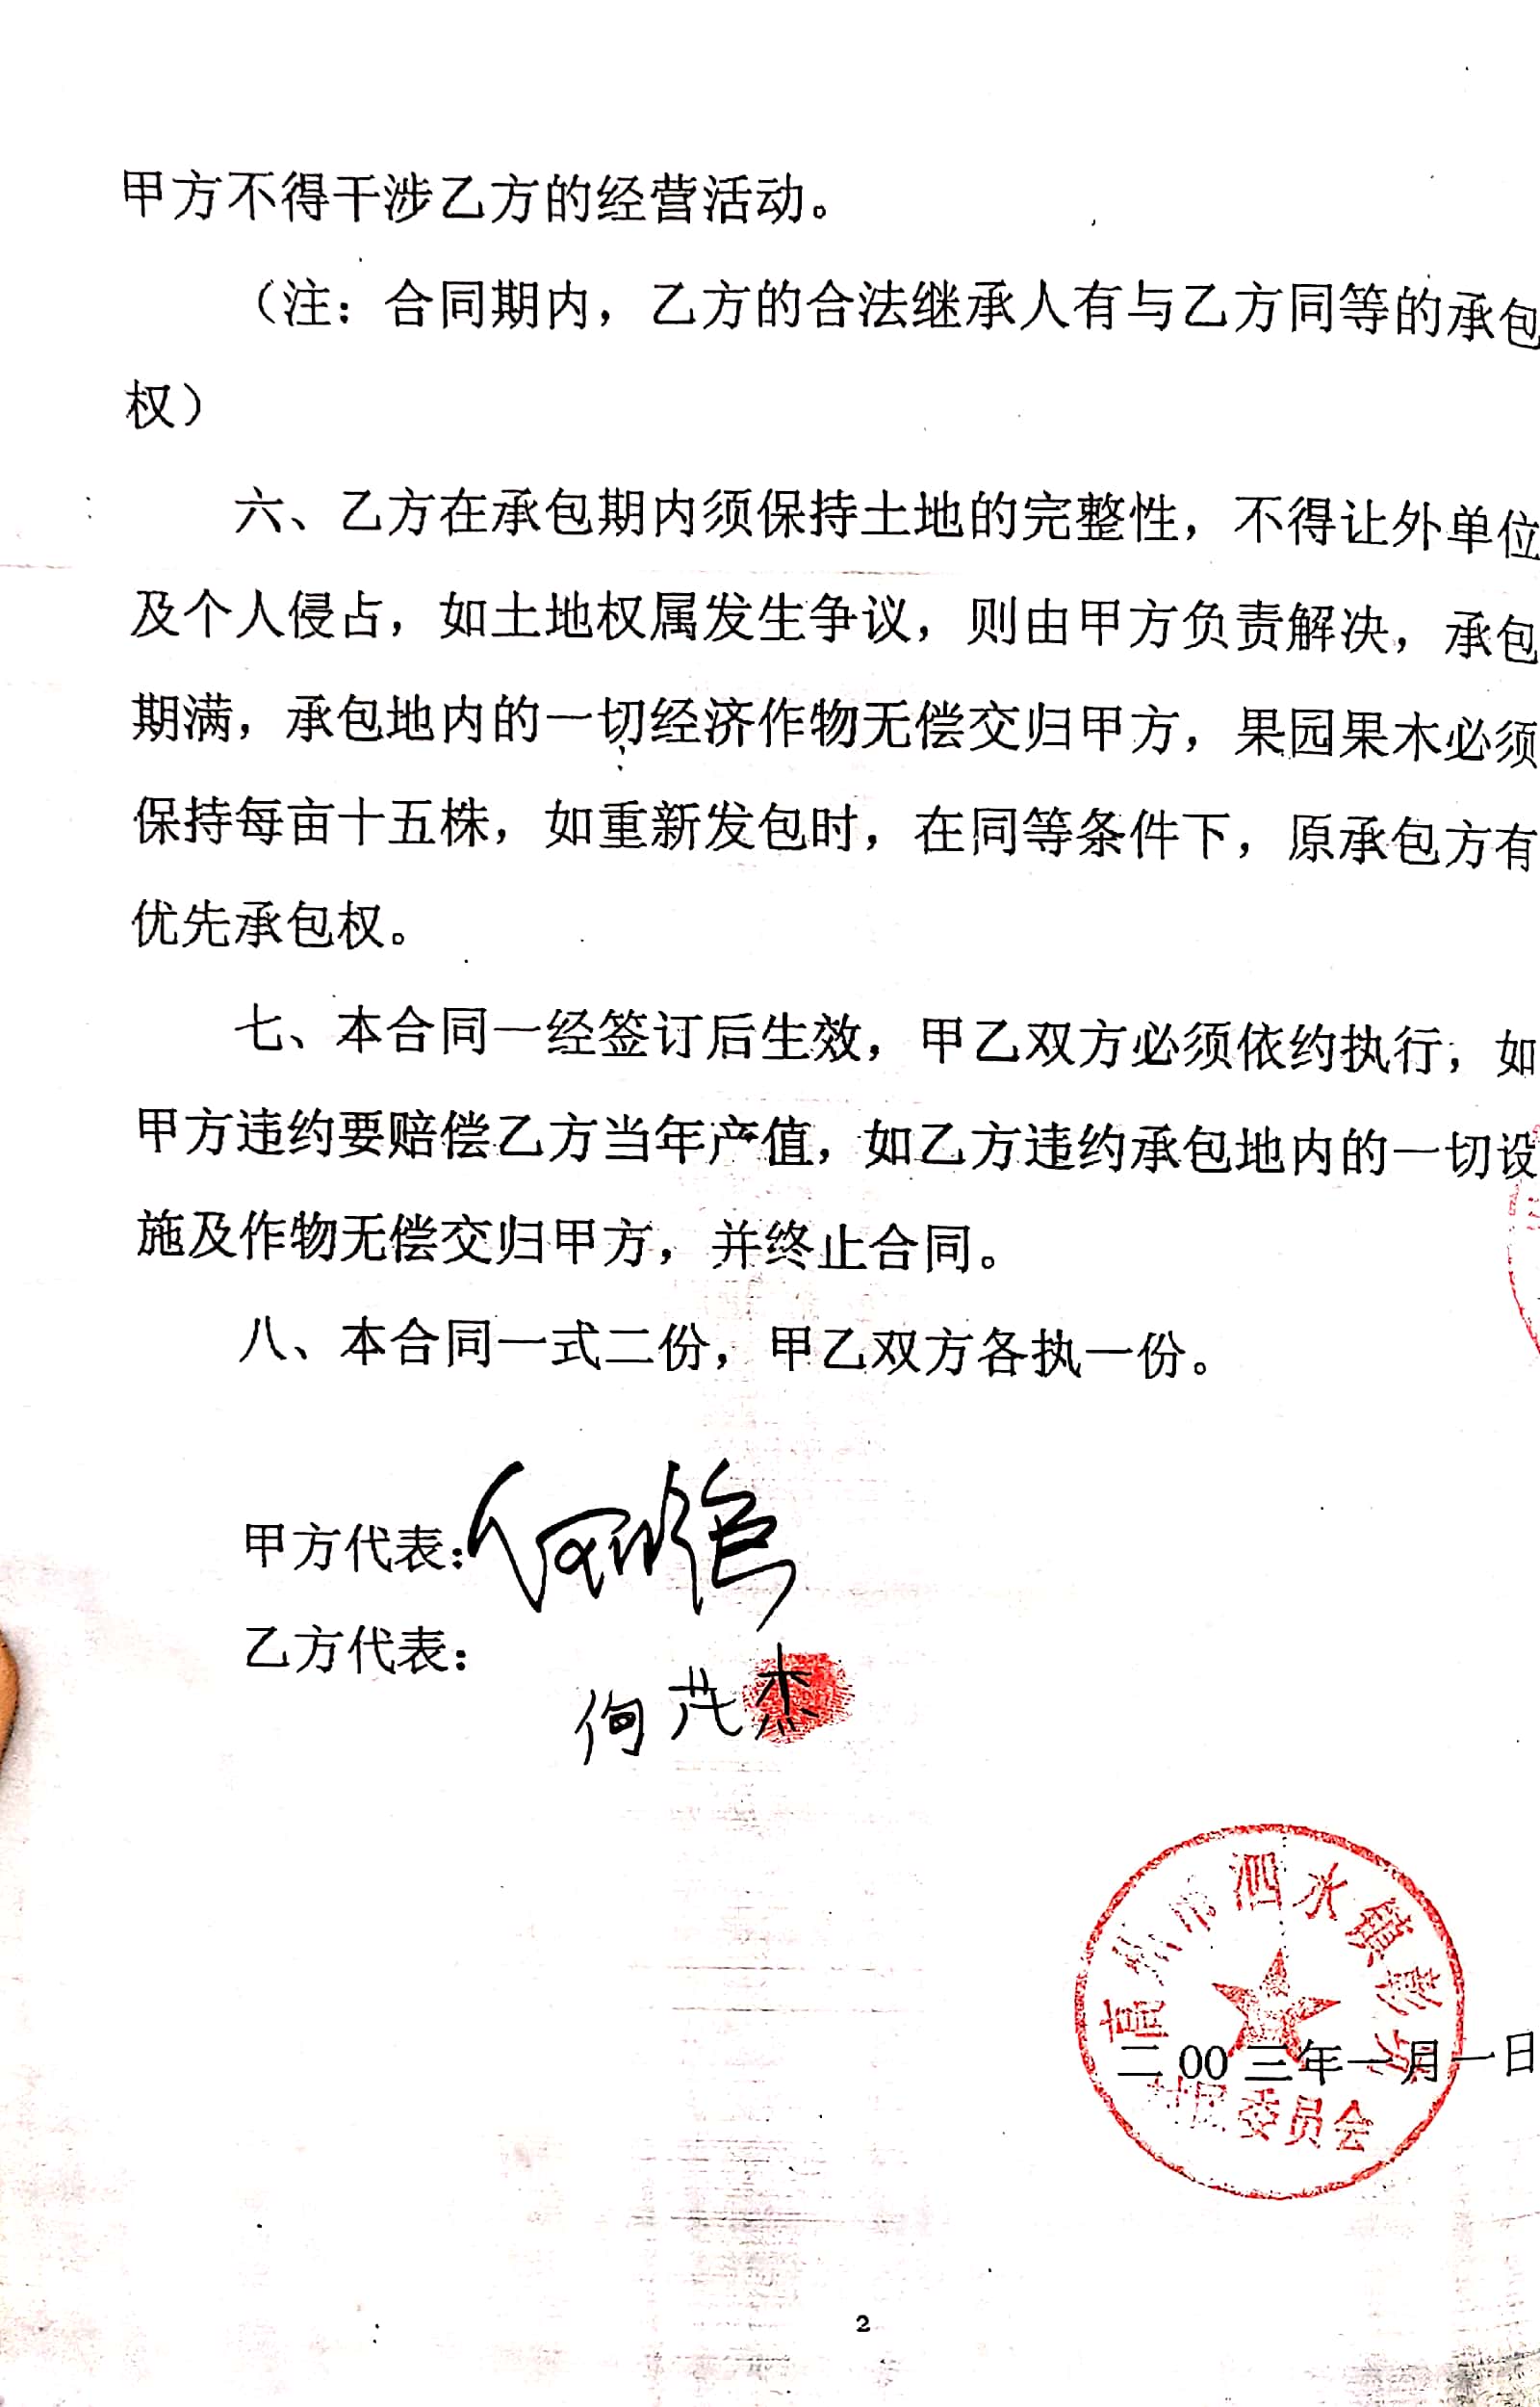 甲方不得干涉乙方的经营活动。
（注：合同期内，乙方的合法继承人有与乙方同等的承包
权）
六、乙方在承包期内须保持土地的完整性，不得让外单位
及个人侵占，如土地权属发生争议，则由甲方负责解决，承包
期满，承包地内的一切经济作物无偿交归甲方，果园果木必须
保持每亩十五株，如重新发包时，在同等条件下，原承包方有
优先承包权。
七、本合同一经签订后生效，甲乙双方必须依约执行，如
甲方违约要赔偿乙方当年产值，如乙方违约承包地内的一切设
施及作物无偿交归甲方，并终止合同。
八、本合同一式二份，甲乙双方各执一份。
甲方代表：何
乙方代表：
何茂杰
高州市泗水镇彭
村民委员会
二00三年一月一日
2